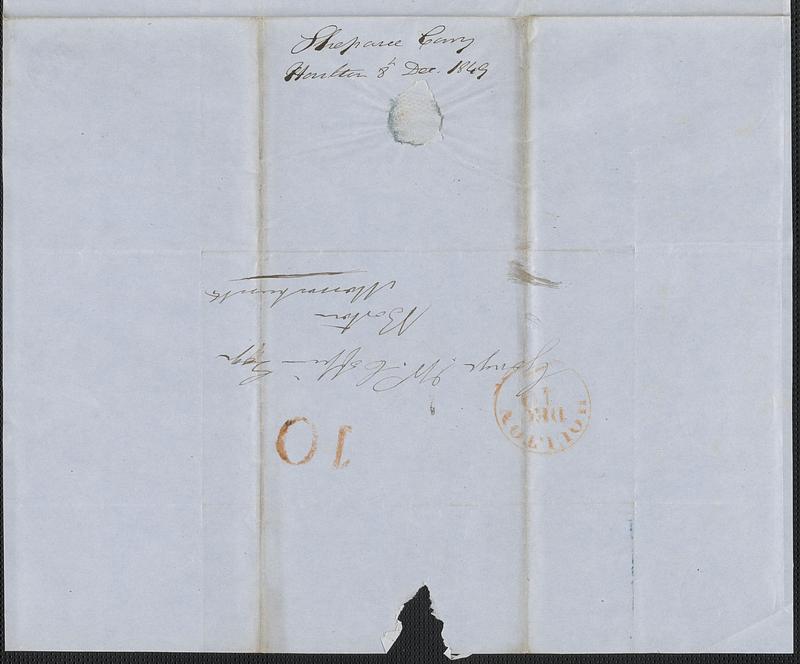 Sheparee Cary
Houlton 8th Dec. 1849
George W. Coffin Esqr
Boston
Massachusetts
HOULTON
DEC
10
10